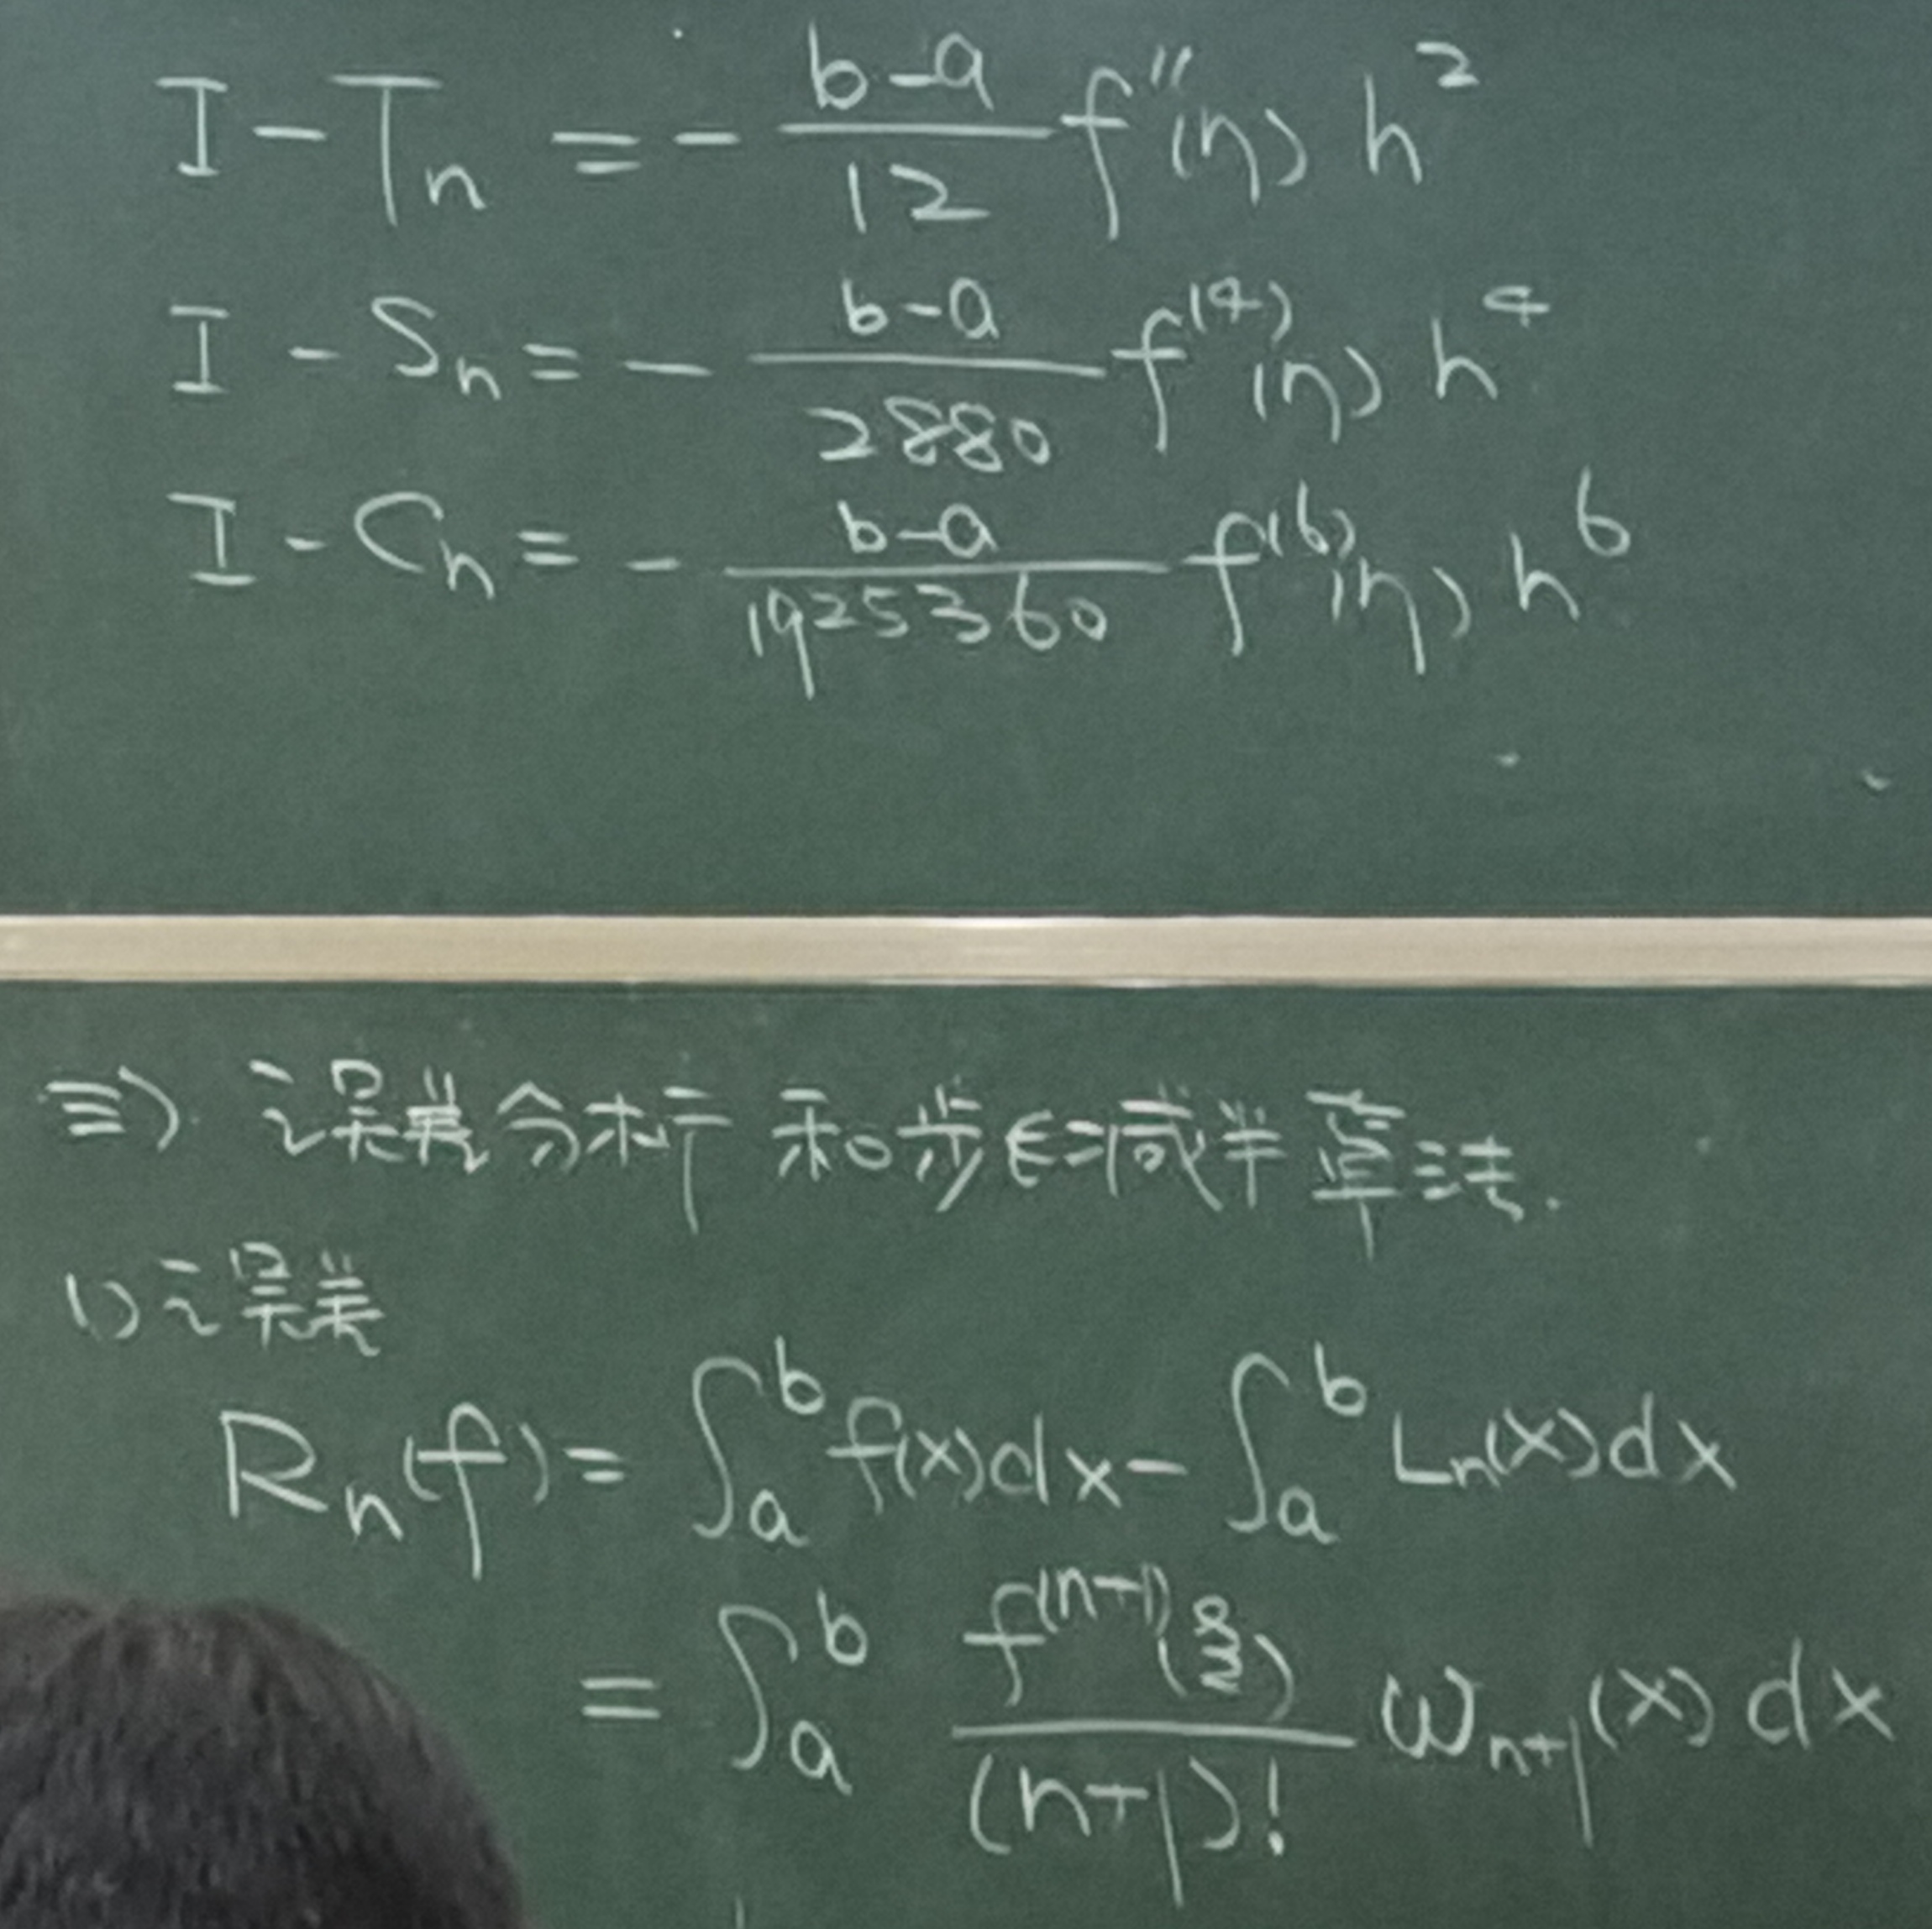 I - Tn = - \frac{b-a}{12} f''(η) h^2
I - Sn = - \frac{b-a}{2880} f^{(4)}(η) h^4
I - Cn = - \frac{b-a}{1925360} f^{(6)}(η) h^6
三) 误差分析和步长减半算法.
1) 误差
R_n(f) = \int_a^b f(x)dx - \int_a^b L_n(x)dx
= \int_a^b \frac{f^{(n+1)}(ξ)}{(n+1)!} ω_{n+1}(x) dx